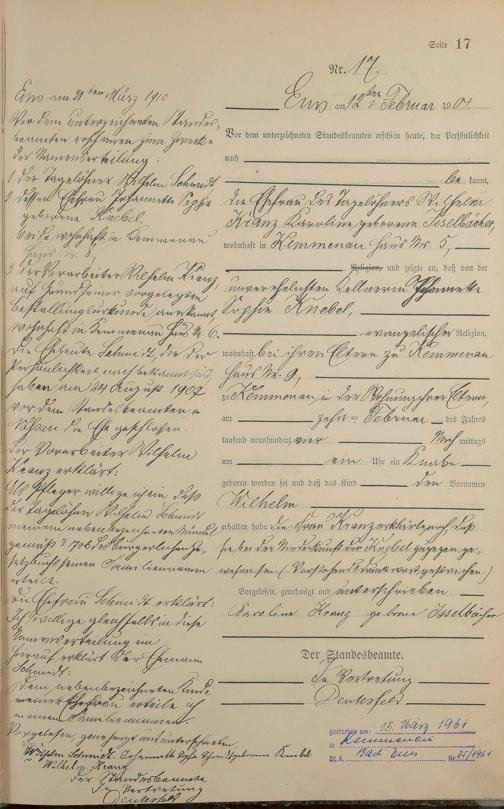 Seite 17
Nr. 17.
Ems am 12ten Februar 1904.
Vor dem unterzeichneten Standesbeamten erschien heute, der Persönlichkeit
nach
be kannt,
die Ehefrau des Tagelöhners Wilhelm
Kranz Karoline geborene Isselbächer,
wohnhaft in Kemmenau Haus Nr. 5,
Religion, und zeigte an, daß von der
unverehelichten Kellnerin Johannette
Sophie Knebel,
evangelischer Religion,
wohnhaft bei ihren Eltern zu Kemmenau
Haus Nr. 9,
zu Kemmenau in der Wohnung ihrer Eltern,
am zehnten Februar des Jahres
tausend neunhundert vier Nach mittags
um ein Uhr ein Knabe
geboren worden sei und daß das Kind den Vornamen
Wilhelm
erhalten habe. Die Frau Kranz erklärte noch daß
sie bei der Niederkunft der Knebel zugegen ge-
wesen sei. (Vorstehend 1 Druckwort gestrichen.)
Vorgelesen, genehmigt und unterschrieben
Karoline Kranz geborne Isselbächer
Der Standesbeamte.
In Vertretung
Deutesfeld
gestorben am: 15. März 1961
in Kemmenau
St. A. Bad Ems Nr. 35/1961
Ems am 21ten März 1910
Vor dem unterzeichneten Standes-
beamten erschienen zum Zwecke
der Namenserteilung:
1 der Tagelöhner Wilhelm Schmidt
2 dessen Ehefrau Johannette Sophie
geborene Knebel
beide wohnhaft in Kemmenau
Haus Nr. 8,
3 der Vorarbeiter Wilhelm Kranz
auf Grund seiner vorgelegten
Bestallungsurkunde anerkannt
wohnhaft in Kemmenau Haus Nr. 6.
Die Eheleute Schmidt, die der
Persönlichkeit nach bekannt sind,
haben am 24 August 1907
vor dem Standesbeamten
die Ehe geschlossen.
Der Vorarbeiter Wilhelm
Kranz erklärt:
Als Pfleger willige ich ein, daß
der Tagelöhner Wilhelm Schmidt
meinem nebenbezeichneten Mündel
gemäß § 1706 des Bürgerlichen Ge-
setzbuchs seinen Familiennamen
erteilt.
Die Ehefrau Schmidt erklärt:
Ich willige gleichfalls in diese
Namenserteilung ein.
Hierauf erklärt der Ehemann
Schmidt:
Dem nebenbezeichneten Kinde
meiner Ehefrau erteile ich
meinen Familiennamen.
Vorgelesen, genehmigt und unterschrieben
Wilhelm Schmidt. Johannette Sophie Schmidt geborene Knebel
Wilhelm Kranz
Der Standesbeamte
In Vertretung
Deutesfeld